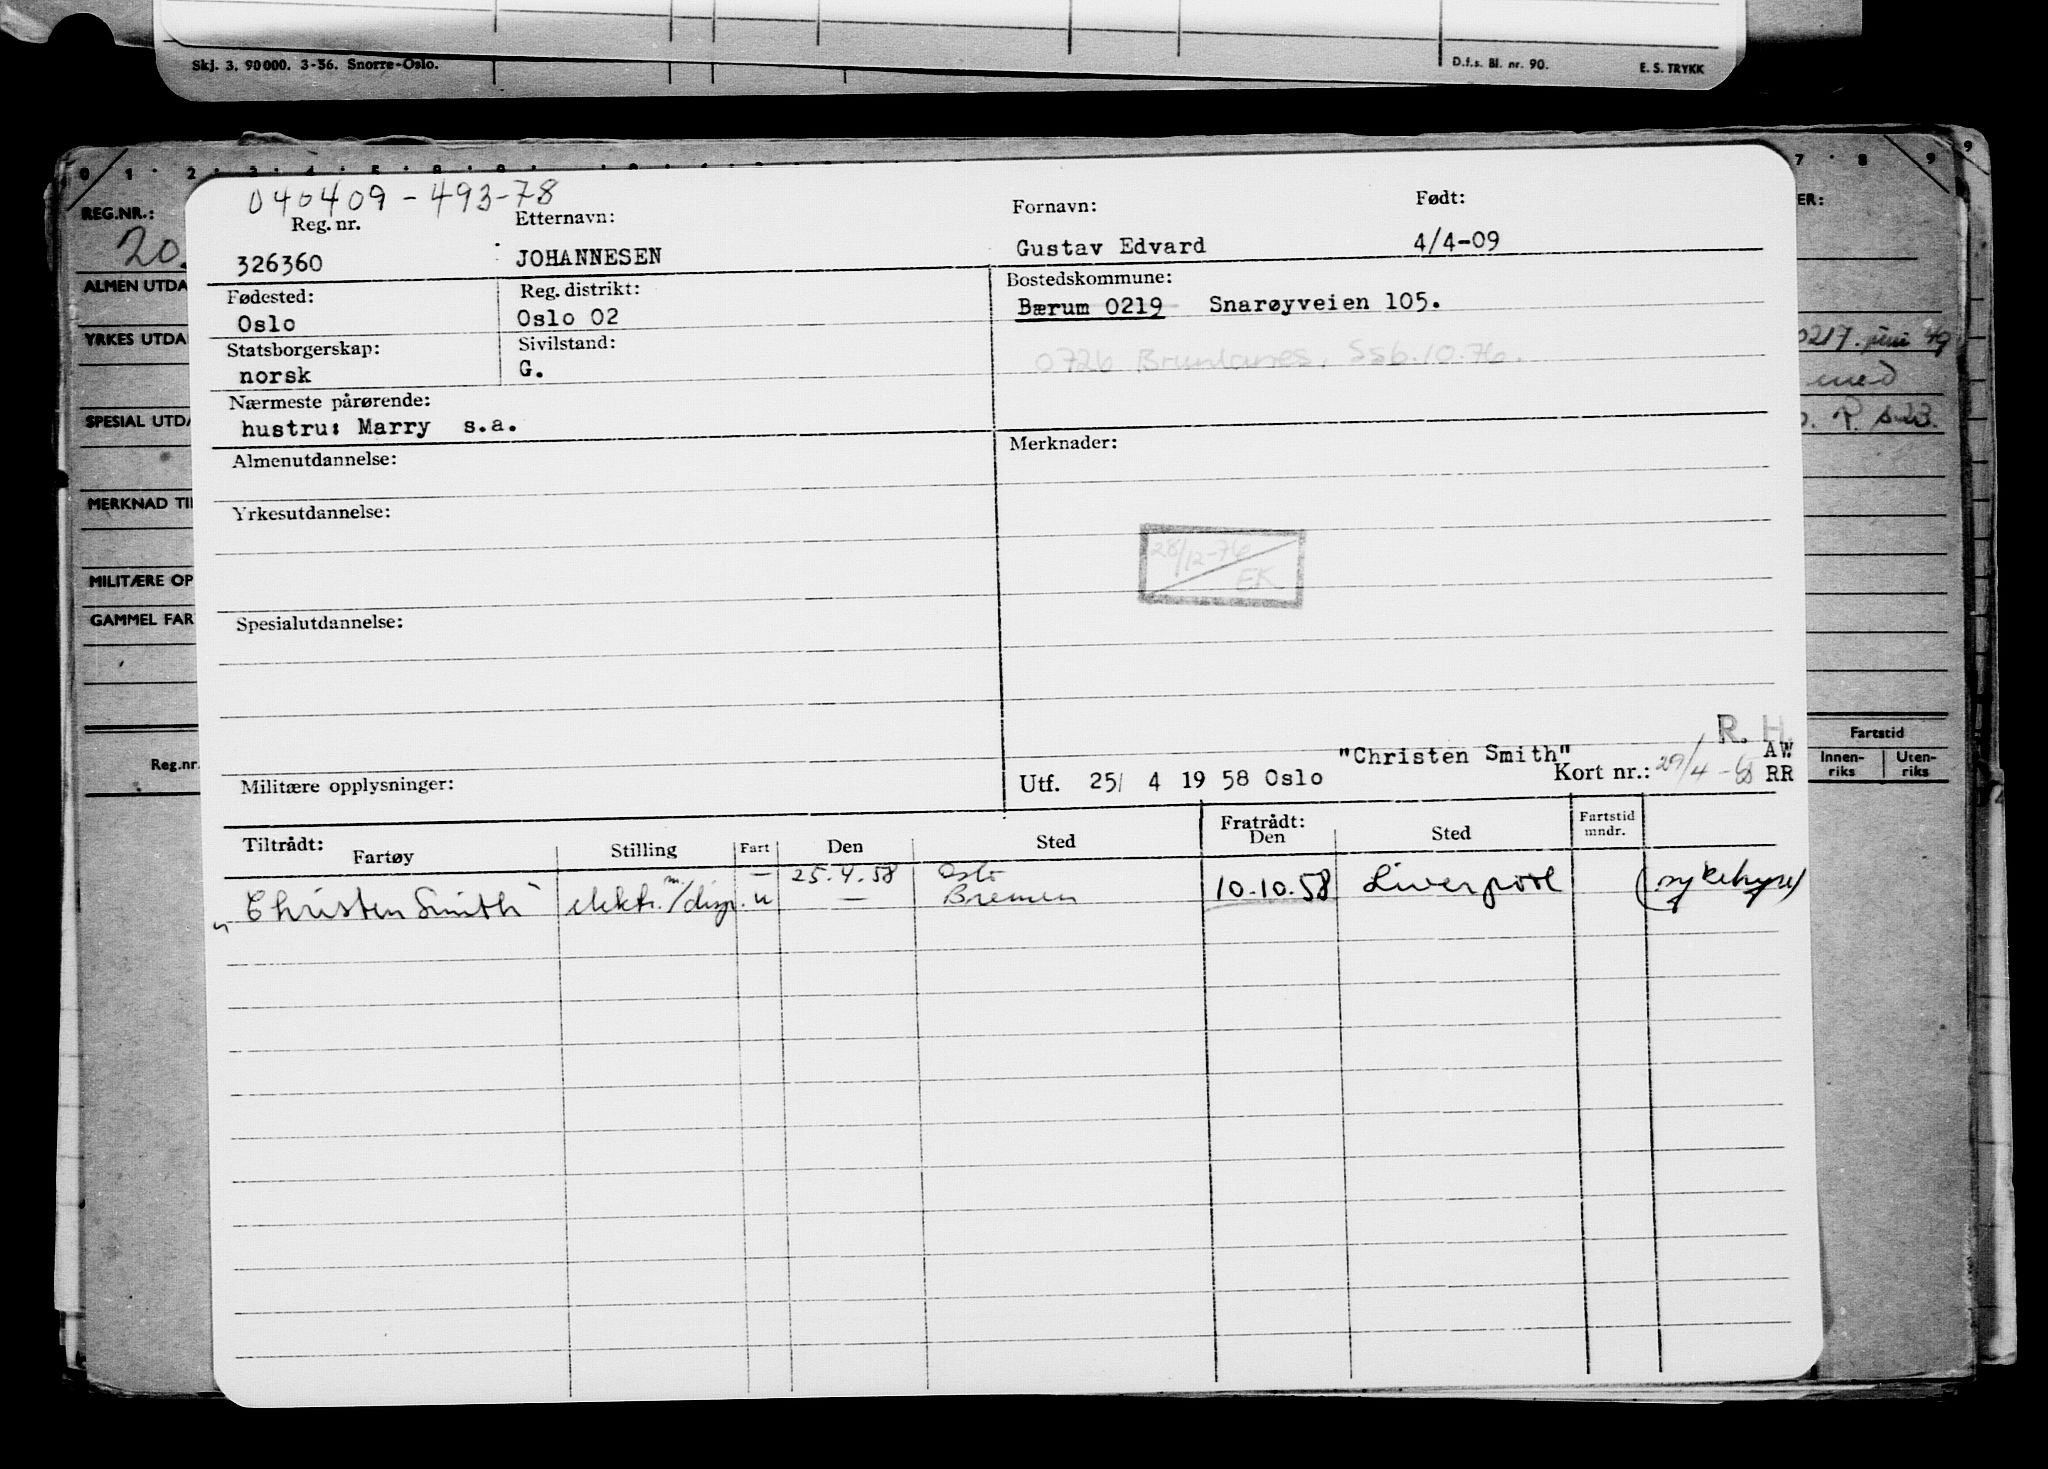 Skj. 3. 90000. 3-56. Snorre-Oslo.
D.f.s. Bl. nr. 90.
E. S. TRYKK
REG.NR.:
20
ALMEN UTDA
YRKES UTDA
SPESIAL UTDA
MERKNAD TI
MILITÆRE OP
GAMMEL FAR
Reg.nr.
040409-493-78
Reg. nr.
Etternavn:
Fornavn:
Født:
326360
JOHANNESEN
Gustav Edvard
4/4-09
Fødested:
Reg. distrikt:
Bostedskommune:
Oslo
Oslo 02
Bærum 0219 Snarøyveien 105.
Statsborgerskap:
Sivilstand:
0726 Brunlanes. Ssb.10.76.
norsk
G.
Nærmeste pårørende:
hustru: Marry s.a.
Merknader:
Almenutdannelse:
Yrkesutdannelse:
28/12-76
EK
Spesialutdannelse:
R. H.
"Christen Smith"
AW
Militære opplysninger:
Utf. 25/ 4 19 58 Oslo
Kort nr.: 29/4-
RR
Tiltrådt:
Fartøy
Stilling
Fart
Den
Sted
Fratrådt:
Den
Sted
Fartstid
mndr.
— 25.4.58 Oslo
"Christen Smith" elektr.m./disp. u — Bremen 10.10.58 Liverpool (sykehyre)
ER:
0217. juni 49
med
Fartstid
Innen-
riks
Uten-
riks